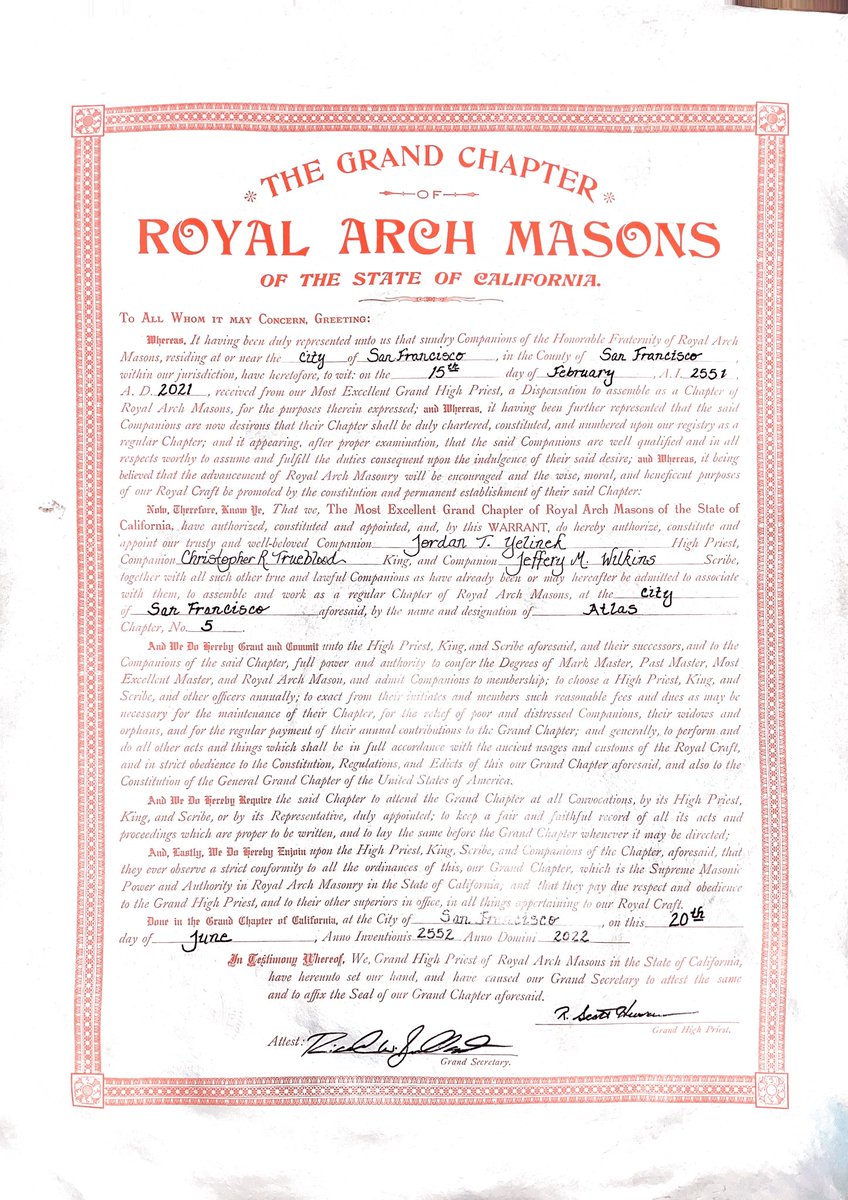 THE GRAND CHAPTER
OF
ROYAL ARCH MASONS
OF THE STATE OF CALIFORNIA.
To All Whom it may Concern, Greeting:
Whereas, It having been duly represented unto us that sundry Companions of the Honorable Fraternity of Royal Arch
Masons, residing at or near the City of San Francisco, in the County of San Francisco,
within our jurisdiction, have heretofore, to wit: on the 15th day of February, A. I. 2551,
A. D. 2021, received from our Most Excellent Grand High Priest, a Dispensation to assemble as a Chapter of
Royal Arch Masons, for the purposes therein expressed; and Whereas, it having been further represented that the said
Companions are now desirous that their Chapter shall be duly chartered, constituted, and numbered upon our registry as a
regular Chapter; and it appearing, after proper examination, that the said Companions are well qualified and in all
respects worthy to assume and fulfill the duties consequent upon the indulgence of their said desire; and Whereas, it being
believed that the advancement of Royal Arch Masonry will be encouraged and the wise, moral, and beneficent purposes
of our Royal Craft be promoted by the constitution and permanent establishment of their said Chapter:
Now, Therefore, Know Ye, That we, The Most Excellent Grand Chapter of Royal Arch Masons of the State of
California, have authorized, constituted and appointed, and, by this WARRANT, do hereby authorize, constitute and
appoint our trusty and well-beloved Companion Jordan T. Yelinek High Priest,
Companion Christopher R Trueblood King, and Companion Jeffery M. Wilkins Scribe,
together with all such other true and lawful Companions as have already been or may hereafter be admitted to associate
with them, to assemble and work as a regular Chapter of Royal Arch Masons, at the City
of San Francisco aforesaid, by the name and designation of Atlas
Chapter, No. 5.
And We Do Hereby Grant and Commit unto the High Priest, King, and Scribe aforesaid, and their successors, and to the
Companions of the said Chapter, full power and authority to confer the Degrees of Mark Master, Past Master, Most
Excellent Master, and Royal Arch Mason, and admit Companions to membership; to choose a High Priest, King, and
Scribe, and other officers annually; to exact from their initiates and members such reasonable fees and dues as may be
necessary for the maintenance of their Chapter, for the relief of poor and distressed Companions, their widows and
orphans, and for the regular payment of their annual contributions to the Grand Chapter; and generally, to perform and
do all other acts and things which shall be in full accordance with the ancient usages and customs of the Royal Craft,
and in strict obedience to the Constitution, Regulations, and Edicts of this our Grand Chapter aforesaid, and also to the
Constitution of the General Grand Chapter of the United States of America.
And We Do Hereby Require the said Chapter to attend the Grand Chapter at all Convocations, by its High Priest,
King, and Scribe, or by its Representative, duly appointed; to keep a fair and faithful record of all its acts and
proceedings which are proper to be written, and to lay the same before the Grand Chapter whenever it may be directed;
And, Lastly, We Do Hereby Enjoin upon the High Priest, King, Scribe, and Companions of the Chapter, aforesaid, that
they ever observe a strict conformity to all the ordinances of this, our Grand Chapter, which is the Supreme Masonic
Power and Authority in Royal Arch Masonry in the State of California, and that they pay due respect and obedience
to the Grand High Priest, and to their other superiors in office, in all things appertaining to our Royal Craft.
Done in the Grand Chapter of California, at the City of San Francisco, on this 20th
day of June, Anno Inventionis 2552 Anno Domini 2022
In Testimony Whereof, We, Grand High Priest of Royal Arch Masons in the State of California,
have hereunto set our hand, and have caused our Grand Secretary to attest the same
and to affix the Seal of our Grand Chapter aforesaid.
R. Scott
Grand High Priest.
Attest:
Grand Secretary.